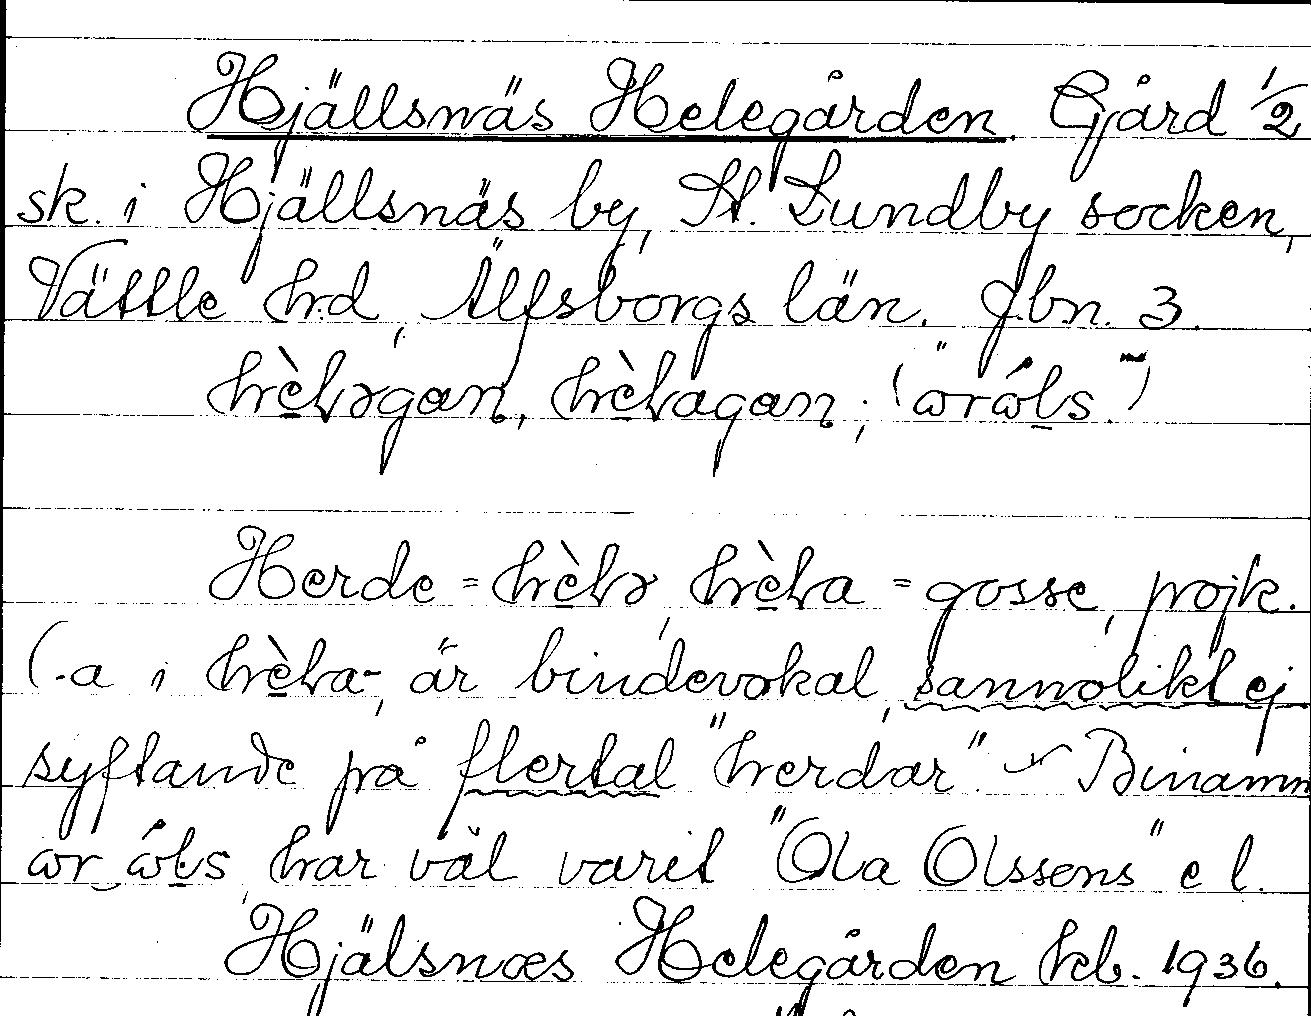 Hjällsnäs Helegården. Gård 1/2
sk. i Hjällsnäs by, St. Lundby socken,
Vättle hrd, Älfsborgs län. Jbn. 3.
hèləgan, hèlagan; ("ωrώls")
Herde = hèlə, hèla = gosse, pojk.
(-a i hèla-, är bindevokal, sannolikt ej
syftande på flertal "herdar". Binamn
ωr ώls, har väl varit "Ola Olssons" e l.
Hjälsnæs Helegården kb. 1936.